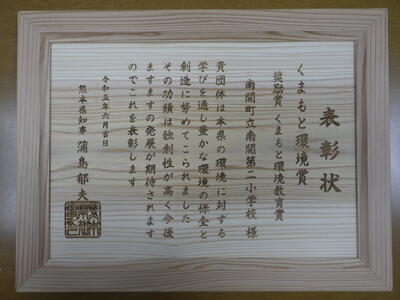 表彰状
くまもと環境賞
奨励賞 くまもと環境教育賞
南関町立南関第二小学校 様
貴団体は本県の環境に対する
学びを通し豊かな環境の保全と
創造に努めてこられました
その功績は独創性が高く今後
ますますの発展が期待されます
のでこれを表彰します
令和五年六月吉日
熊本県知事 蒲島郁夫